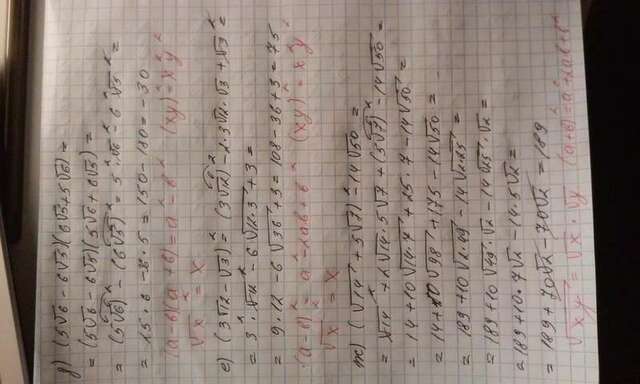 д) (5√6 - 6√5)(6√5+5√6) =
= (5√6 - 6√5)(5√6 + 6√5) =
= (5√6)² - (6√5)² = 5²·√6² - 6²√5² =
= 25·6 - 36·5 = 150 - 180 = -30
(a-b)(a+b) = a² - b² (xy)² = x²y²
√x² = x
е) (3√12 - √3)² = (3√12)² - 2·3√12·√3 + √3² =
= 3²·√12² - 6√12·3 + 3 =
= 9·12 - 6√36 + 3 = 108 - 36 + 3 = 75
(a-b)² = a² - 2ab + b² (xy)² = x²y²
√x² = x
ж) (√14 + 5√7)² - 14√50 =
= √14² + 2√14·5√7 + (5√7)² - 14√50 =
= 14 + 10√14·7 + 25·7 - 14√50 =
= 14 + 10√98 + 175 - 14√50 =
= 189 + 10√2·49 - 14√2·25 =
= 189 + 10√49·√2 - 14√25·√2 =
= 189 + 10·7√2 - 14·5√2 =
= 189 + 70√2 - 70√2 = 189
√xy = √x·√y (a+b)² = a² + 2ab + b²